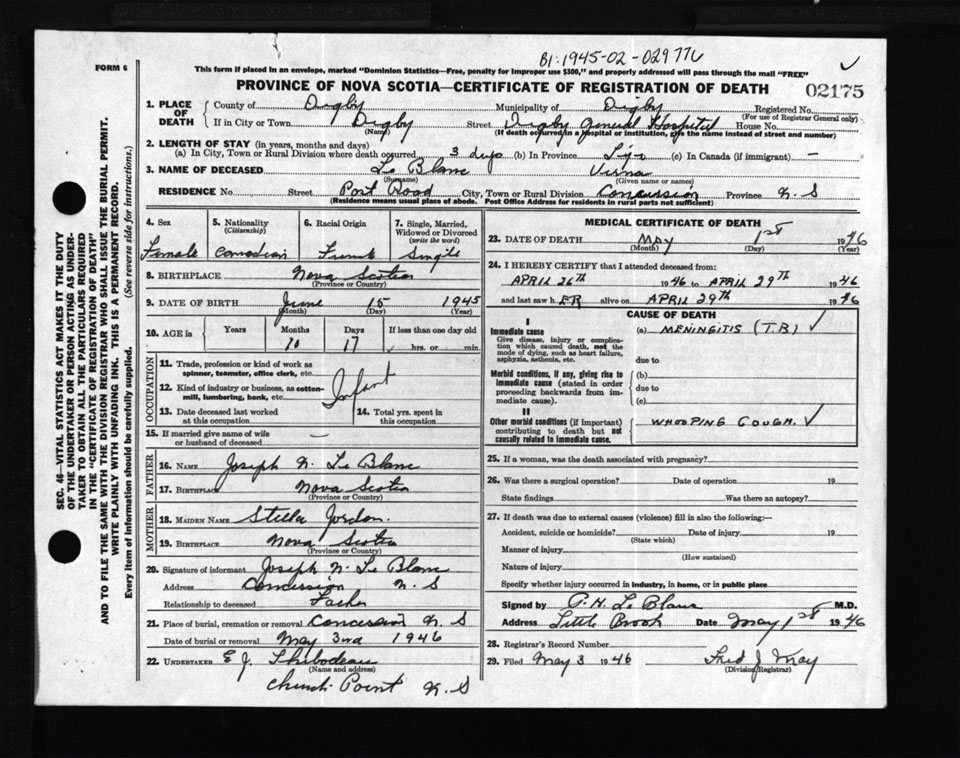 B1·1945-02-029776
FORM 6
This form if placed in an envelope, marked "Dominion Statistics—Free, penalty for improper use $300," and properly addressed will pass through the mail "FREE"
PROVINCE OF NOVA SCOTIA—CERTIFICATE OF REGISTRATION OF DEATH
02175
1. PLACE OF DEATH
County of Digby Municipality of Digby Registered No.
(For use of Registrar General only)
If in City or Town Digby Street Digby General Hospital House No.
(Name) (If death occurred in a hospital or institution, give the name instead of street and number)
2. LENGTH OF STAY (in years, months and days)
(a) In City, Town or Rural Division where death occurred 3 days (b) In Province (c) In Canada (if immigrant) —
3. NAME OF DECEASED Le Blanc Verna
(Surname) (Given name or names)
RESIDENCE No. Street Port Road City, Town or Rural Division Concession Province N. S
(Residence means usual place of abode. Post Office Address for residents in rural parts not sufficient)
4. Sex
Female
5. Nationality (Citizenship)
Canadian
6. Racial Origin
French
7. Single, Married, Widowed or Divorced (write the word)
Single
8. BIRTHPLACE Nova Scotia
(Province or Country)
9. DATE OF BIRTH June 15 1945
(Month) (Day) (Year)
10. AGE in Years Months Days If less than one day old
10 17 hrs. or min.
OCCUPATION
11. Trade, profession or kind of work as spinner, teamster, office clerk, etc.
12. Kind of industry or business, as cotton-mill, lumbering, bank, etc.
Infant
13. Date deceased last worked at this occupation
14. Total yrs. spent in this occupation
15. If married give name of wife or husband of deceased —
FATHER
16. NAME Joseph N. Le Blanc
17. BIRTHPLACE Nova Scotia
(Province or Country)
MOTHER
18. MAIDEN NAME Stella Jordon.
19. BIRTHPLACE Nova Scotia
(Province or Country)
20. Signature of informant Joseph N. Le Blanc
Address Concession N. S
Relationship to deceased Father
21. Place of burial, cremation or removal Concession N. S
Date of burial or removal May 3rd 1946
22. UNDERTAKER E J. Thibodeau
(Name and address)
Church Point N. S
MEDICAL CERTIFICATE OF DEATH
23. DATE OF DEATH May 1st 1946
(Month) (Day) (Year)
24. I HEREBY CERTIFY that I attended deceased from:
APRIL 26TH 1946 to APRIL 29TH 1946
and last saw h ER alive on APRIL 29TH 1946
CAUSE OF DEATH
I
Immediate cause (a) MENINGITIS (T.B) ✓
Give disease, injury or complication which caused death, not the mode of dying, such as heart failure, asphyxia, asthenia, etc.
due to
Morbid conditions, if any, giving rise to immediate cause (stated in order proceeding backwards from immediate cause).
(b)
due to
(c)
II
Other morbid conditions (if important) contributing to death but not causally related to immediate cause.
WHOOPING COUGH. ✓
25. If a woman, was the death associated with pregnancy?
26. Was there a surgical operation? Date of operation 19
State findings Was there an autopsy?
27. If death was due to external causes (violence) fill in also the following:—
Accident, suicide or homicide? Date of injury 19
(State which)
Manner of injury
(How sustained)
Nature of injury
Specify whether injury occurred in industry, in home, or in public place
Signed by P. H. Le Blanc M.D.
Address Little Brook Date May 1st 1946
28. Registrar's Record Number
29. Filed May 3 1946 Fred J May
(Division Registrar)
SEC. 46—VITAL STATISTICS ACT MAKES IT THE DUTY
OF THE UNDERTAKER OR PERSON ACTING AS UNDER-
TAKER TO OBTAIN ALL THE PARTICULARS REQUIRED
IN THE "CERTIFICATE OF REGISTRATION OF DEATH"
AND TO FILE THE SAME WITH THE DIVISION REGISTRAR WHO SHALL ISSUE THE BURIAL PERMIT.
WRITE PLAINLY WITH UNFADING INK. THIS IS A PERMANENT RECORD.
Every item of information should be carefully supplied. (See reverse side for instructions.)